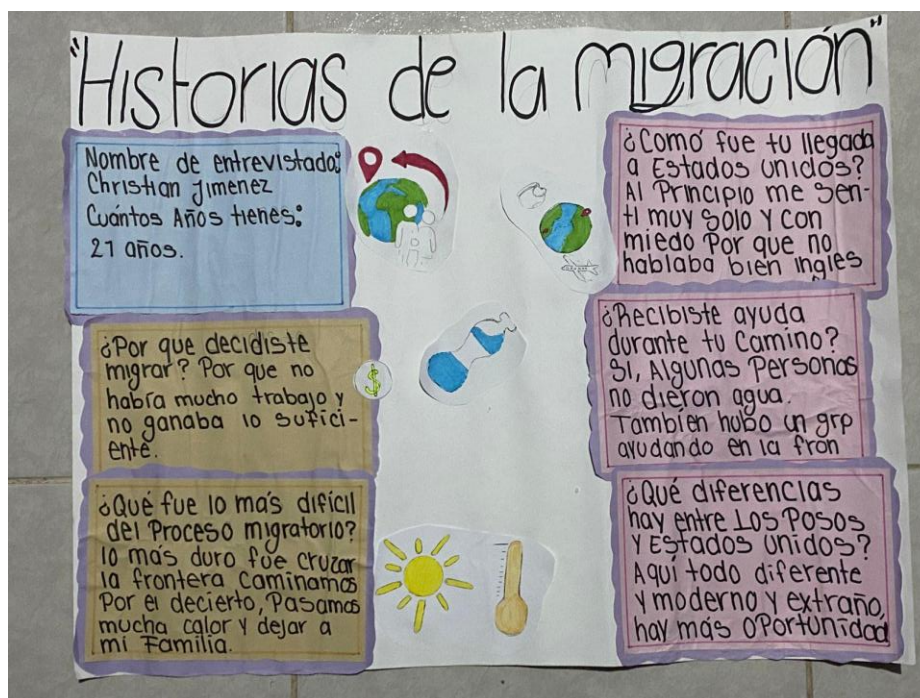 "Historias de la migración"
Nombre de entrevistado:
Christian Jimenez
Cuántos Años tienes:
21 años.
¿Por que decidiste
migrar? Por que no
había mucho trabajo y
no ganaba lo sufici-
ente.
¿Qué fue lo más difícil
del Proceso migratorio?
lo más duro fue cruzar
la frontera Caminamos
Por el decierto, Pasamos
mucha calor y dejar a
mi Familia.
$
¿Comó fue tu llegada
a Estados Unidos?
Al Principio me sen-
tí muy solo y con
miedo Por que no
hablaba bien ingles
¿Recibiste ayuda
durante tu Camino?
SI, Algunas Personas
no dieron agua.
También hubo un grp
ayudando en la fron
¿Qué diferencias
hay entre Los Posos
Y Estados Unidos?
Aquí todo diferente
y moderno y extraño,
hay más oPortunidad